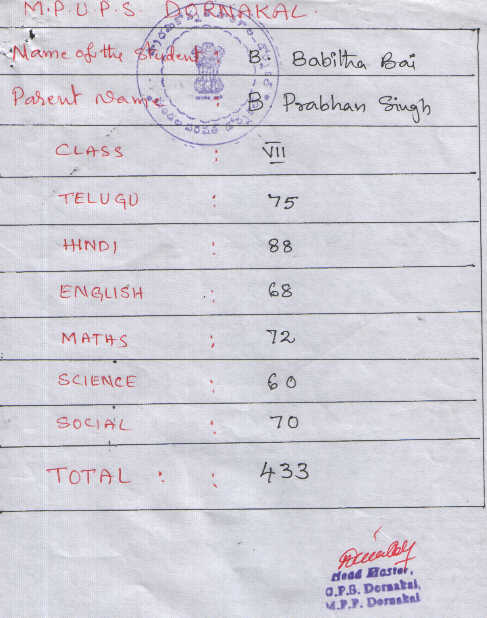 M.P.U.P.S. DORNAKAL.
Name of the Student : B. Babiltha Bai
Parent Name : B Prabhan Singh
CLASS : VII
TELUGU : 75
HINDI : 88
ENGLISH : 68
MATHS : 72
SCIENCE : 60
SOCIAL : 70
TOTAL : : 433
Head Master,
U.P.S. Dornakal,
M.P.P. Dornakal